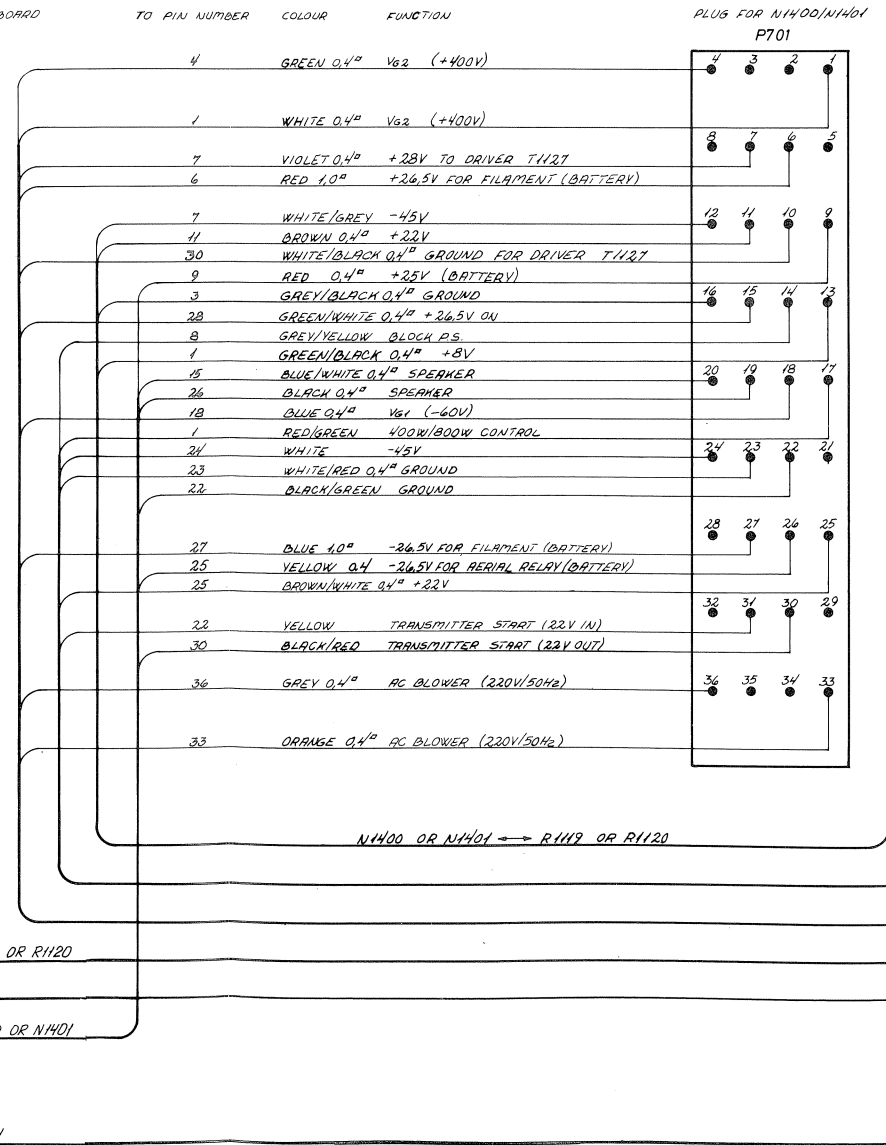 BOARD TO PIN NUMBER COLOUR FUNCTION PLUG FOR N1400/N1401
P701
4 GREEN 0,4¤ VG2 (+400V) 4 3 2 1
1 WHITE 0,4¤ VG2 (+400V)
8 7 6 5
7 VIOLET 0,4¤ +28V TO DRIVER T1127
6 RED 1,0¤ +26,5V FOR FILAMENT (BATTERY)
7 WHITE/GREY -45V 12 11 10 9
11 BROWN 0,4¤ +22V
30 WHITE/BLACK 0,4¤ GROUND FOR DRIVER T1127
9 RED 0,4¤ +25V (BATTERY)
3 GREY/BLACK 0,4¤ GROUND 16 15 14 13
28 GREEN/WHITE 0,4¤ +26,5V ON
8 GREY/YELLOW BLOCK P.S.
1 GREEN/BLACK 0,4¤ +8V
15 BLUE/WHITE 0,4¤ SPEAKER 20 19 18 17
26 BLACK 0,4¤ SPEAKER
18 BLUE 0,4¤ VG1 (-60V)
1 RED/GREEN 400W/800W CONTROL
24 WHITE -45V 24 23 22 21
23 WHITE/RED 0,4¤ GROUND
22 BLACK/GREEN GROUND
28 27 26 25
27 BLUE 1,0¤ -26,5V FOR FILAMENT (BATTERY)
25 YELLOW 0,4 -26,5V FOR AERIAL RELAY (BATTERY)
25 BROWN/WHITE 0,4¤ +22V
32 31 30 29
22 YELLOW TRANSMITTER START (22V IN)
30 BLACK/RED TRANSMITTER START (22V OUT)
36 GREY 0,4¤ AC BLOWER (220V/50Hz) 36 35 34 33
33 ORANGE 0,4¤ AC BLOWER (220V/50Hz)
N1400 OR N1401 ↔ R1119 OR R1120
OR R1120
OR N1401